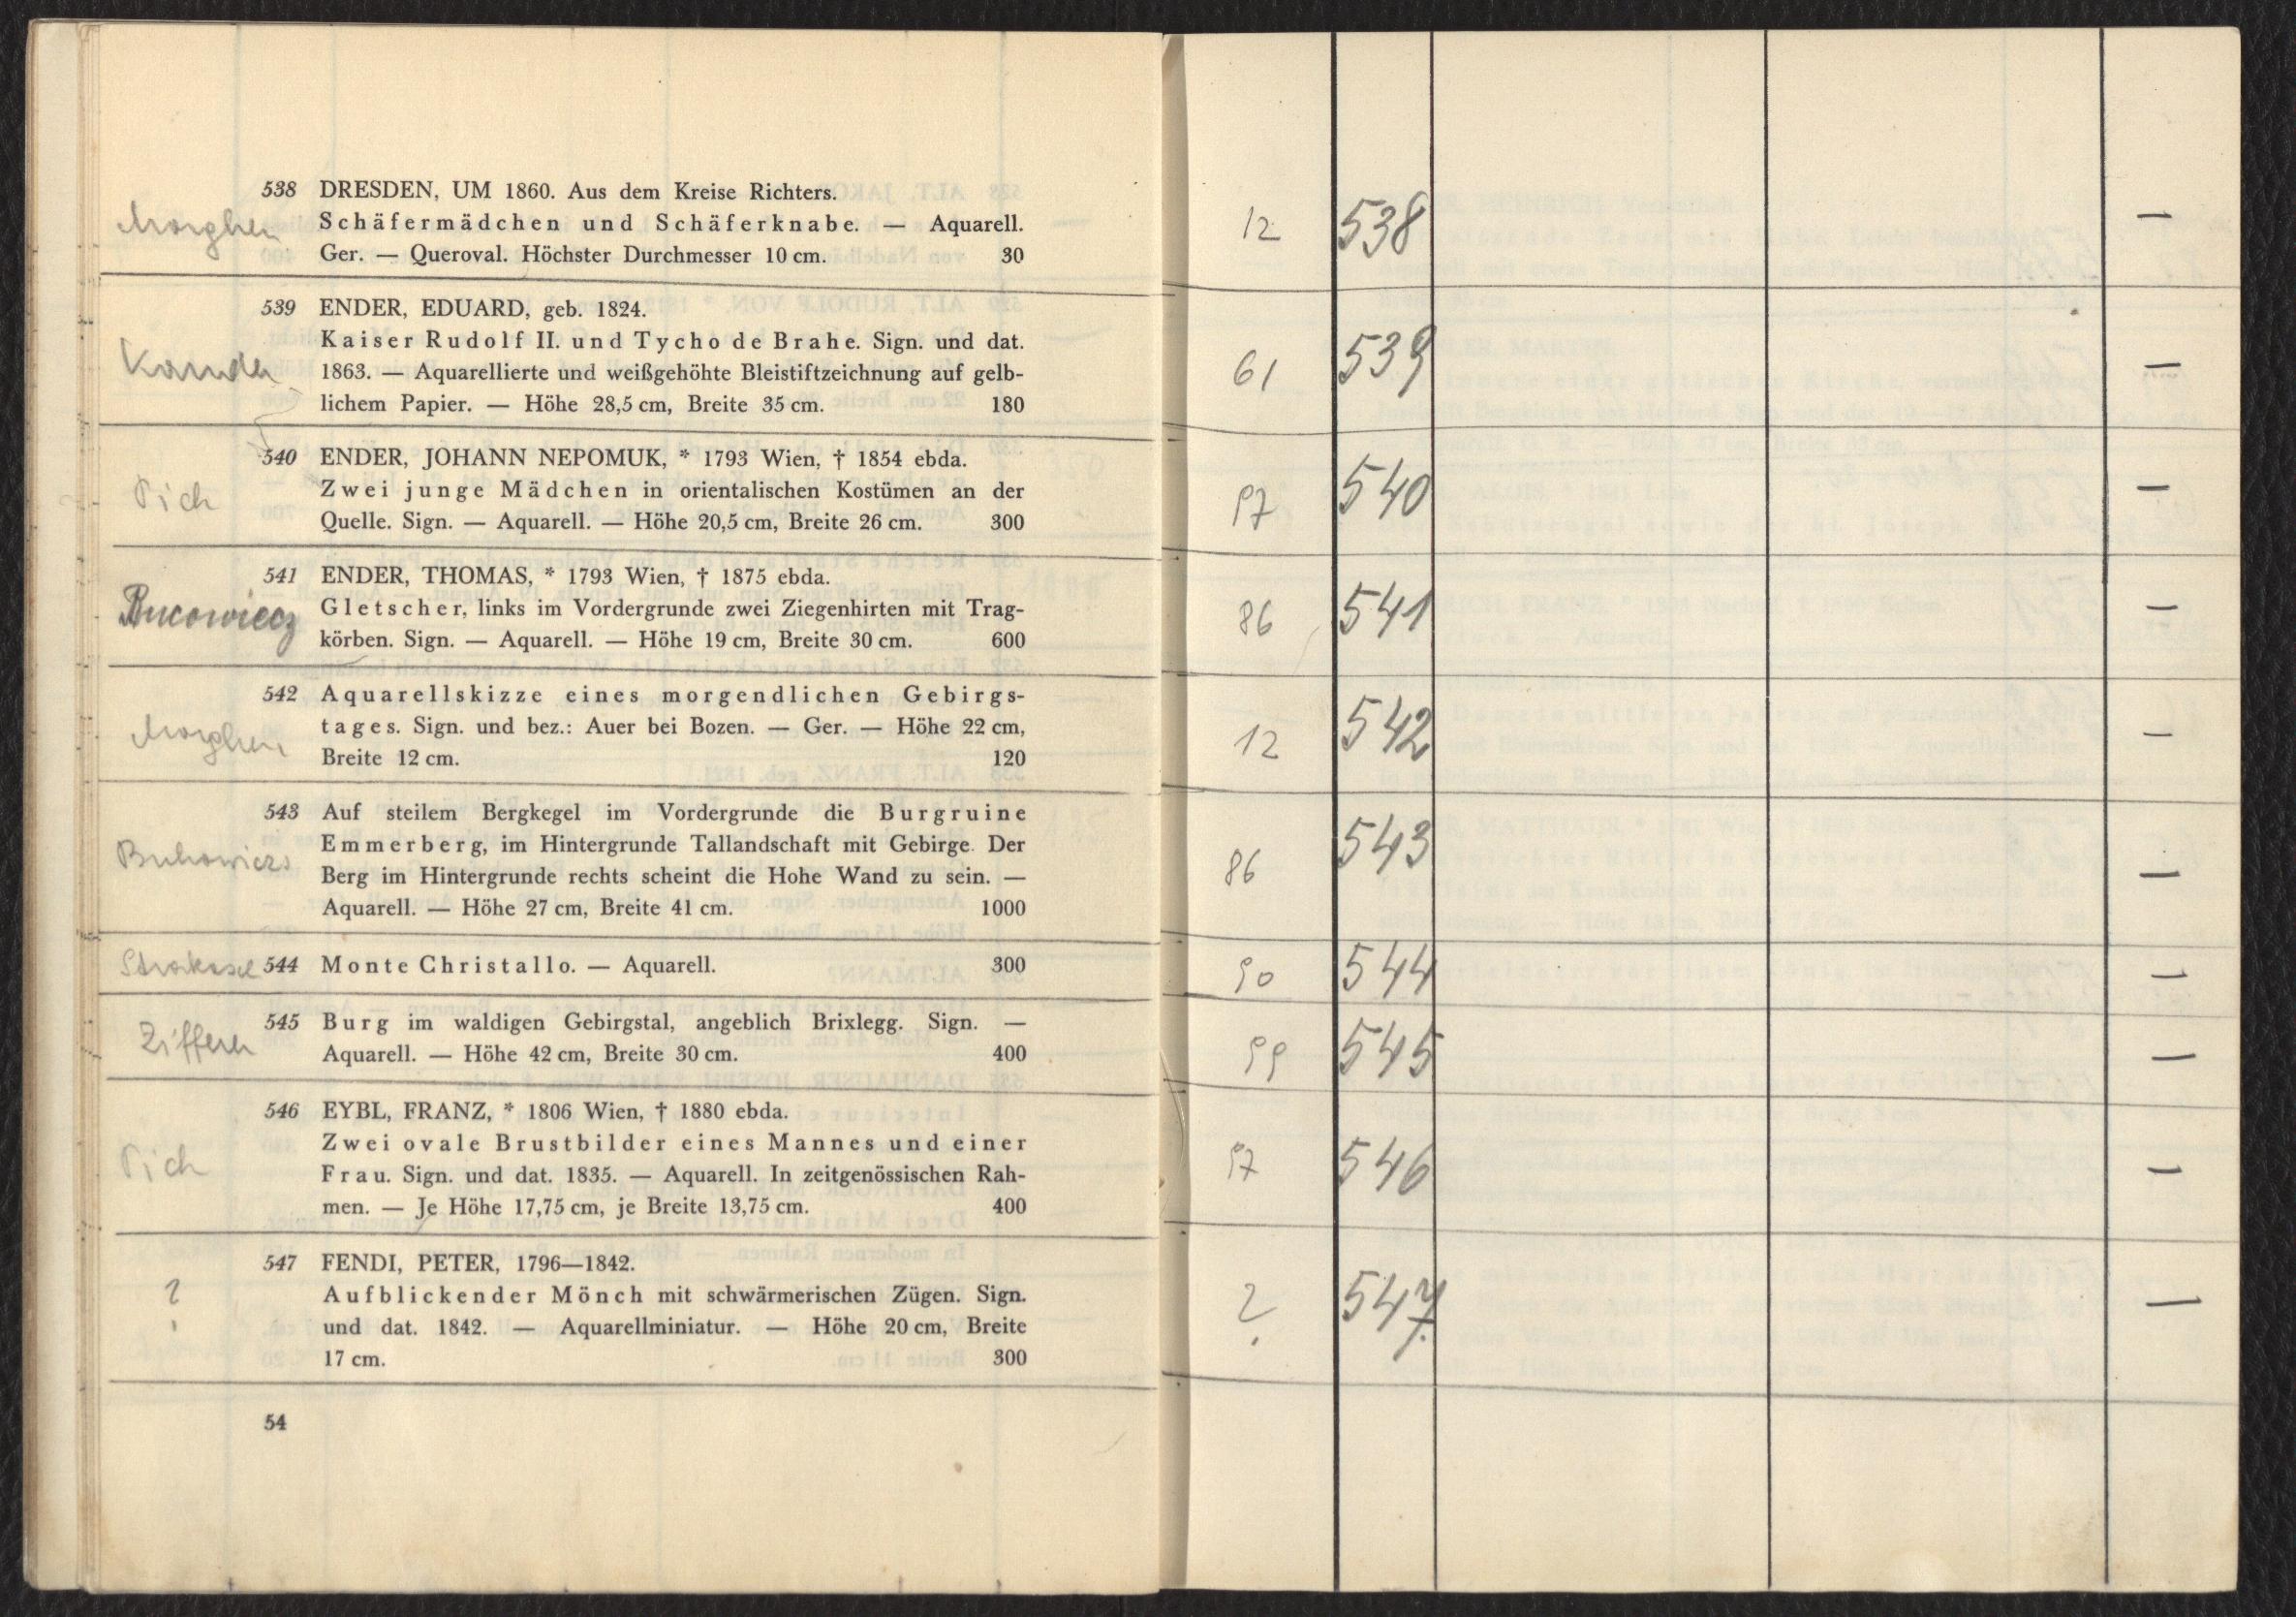 538 DRESDEN, UM 1860. Aus dem Kreise Richters.
Morghen
Schäfermädchen und Schäferknabe. — Aquarell.
Ger. — Queroval. Höchster Durchmesser 10 cm. 30
539 ENDER, EDUARD, geb. 1824.
Kaiser Rudolf II. und Tycho de Brahe. Sign. und dat.
1863. — Aquarellierte und weißgehöhte Bleistiftzeichnung auf gelb-
lichem Papier. — Höhe 28,5 cm, Breite 35 cm. 180
540 ENDER, JOHANN NEPOMUK, * 1793 Wien, † 1854 ebda.
Pich
Zwei junge Mädchen in orientalischen Kostümen an der
Quelle. Sign. — Aquarell. — Höhe 20,5 cm, Breite 26 cm. 300
541 ENDER, THOMAS, * 1793 Wien, † 1875 ebda.
Bucowiecz
Gletscher, links im Vordergrunde zwei Ziegenhirten mit Trag-
körben. Sign. — Aquarell. — Höhe 19 cm, Breite 30 cm. 600
542 Aquarellskizze eines morgendlichen Gebirgs-
Morghen
tages. Sign. und bez.: Auer bei Bozen. — Ger. — Höhe 22 cm,
Breite 12 cm. 120
543 Auf steilem Bergkegel im Vordergrunde die Burgruine
Emmerberg, im Hintergrunde Tallandschaft mit Gebirge. Der
Bukowiczs
Berg im Hintergrunde rechts scheint die Hohe Wand zu sein. —
Aquarell. — Höhe 27 cm, Breite 41 cm. 1000
544 Monte Christallo. — Aquarell. 300
545 Burg im waldigen Gebirgstal, angeblich Brixlegg. Sign. —
Zifferer
Aquarell. — Höhe 42 cm, Breite 30 cm. 400
546 EYBL, FRANZ, * 1806 Wien, † 1880 ebda.
Zwei ovale Brustbilder eines Mannes und einer
Pich
Frau. Sign. und dat. 1835. — Aquarell. In zeitgenössischen Rah-
men. — Je Höhe 17,75 cm, je Breite 13,75 cm. 400
547 FENDI, PETER, 1796—1842.
?
Aufblickender Mönch mit schwärmerischen Zügen. Sign.
und dat. 1842. — Aquarellminiatur. — Höhe 20 cm, Breite
17 cm. 300
54
12 538 —
61 539 —
97 540 —
86 541 —
12 542 —
86 543 —
90 544 —
99 545 —
97 546 —
? 547 —